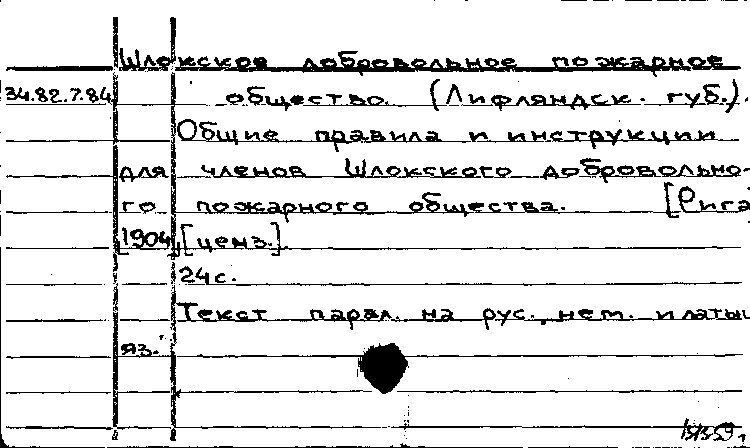 Шлокское добровольное пожарное
34.82.7.84 общество. (Лифляндск. губ.).
Общие правила и инструкции
для членов Шлокского добровольно-
го пожарного общества. [Рига
1904], [ценз.].
24с.
Текст парал. на рус., нем. и латыш
яз.